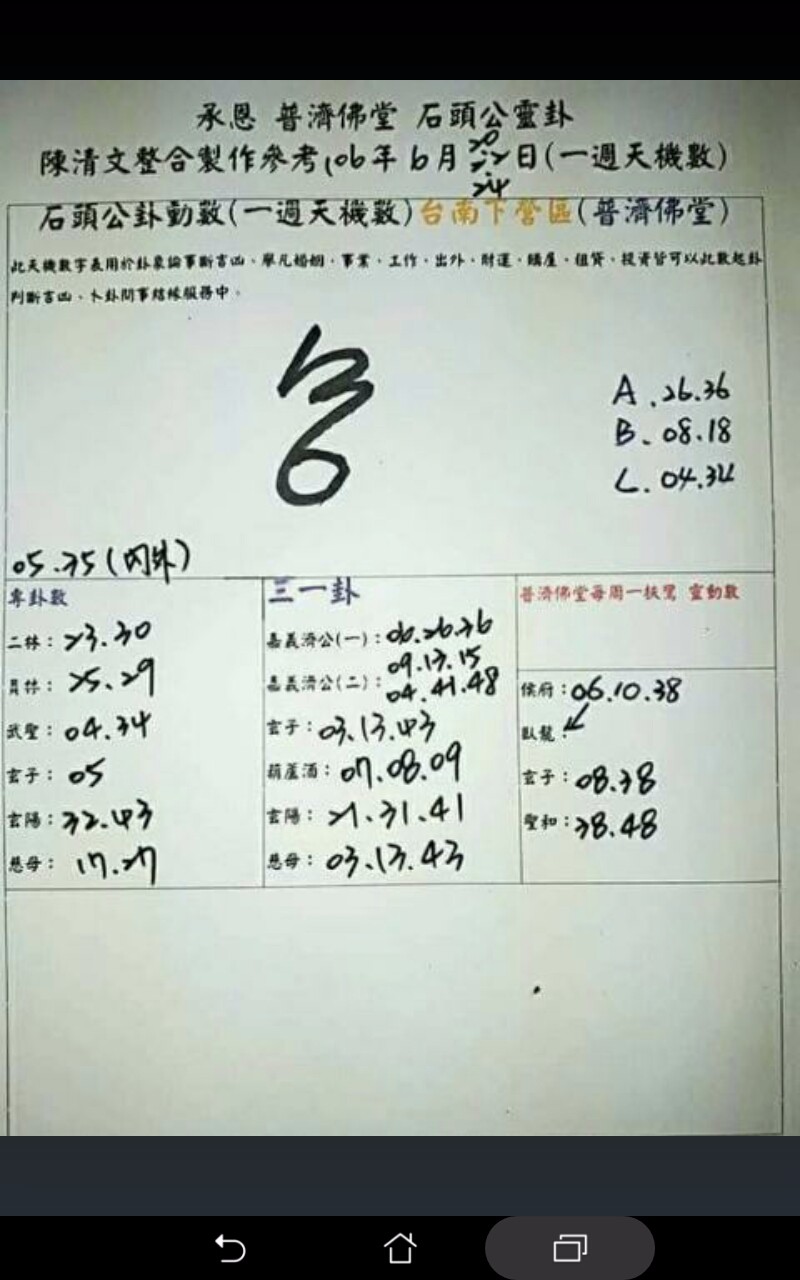 承恩 普濟佛堂 石頭公靈卦
陳清文整合製作參考106年6月20.22.24日(一週天機數)
石頭公卦動數(一週天機數)台南下營區(普濟佛堂)
此天機數字表用於卦象論事斷吉凶、舉凡婚姻、事業、工作、出外、財運、購屋、租賃、投資皆可以此數起卦
判斷吉凶、卜卦問事結緣服務中。
A.26.36
B.08.18
C.04.34
05.35(內外)
專卦數
二林：23.30
員林：25.29
武聖：04.34
玄子：05
玄陽：32.43
慈母：17.27
三一卦
嘉義濟公(一)：06.26.36
09.13.15
嘉義濟公(二)：04.41.48
玄子：03.13.43
葫蘆酒：07.08.09
玄陽：21.31.41
慈母：03.13.43
普濟佛堂每周一扶鸞 靈動數
侯府：06.10.38
臥龍：
玄子：08.38
聖和：38.48